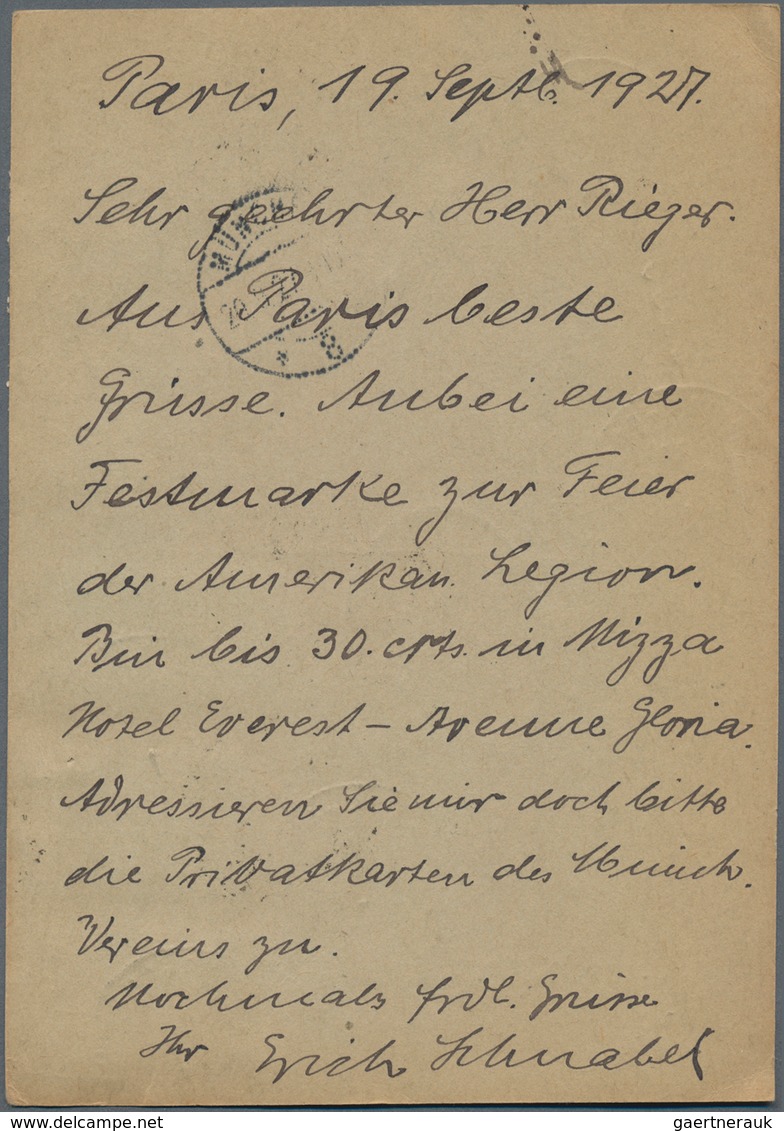 Paris, 19. Septb. 1927.
Sehr geehrter Herr Rieger.
Aus Paris beste
Grüsse. Anbei eine
Festmarke zur Feier
der Amerikan. Legion.
Bin bis 30. crts. in Nizza
Hotel Everest – Avenue Gloria.
Adressieren Sie mir doch bitte
die Privatkarten des Münch.
Vereins zu.
Nochmals frdl. Grüsse
Ihr Erich Schnabel
MÜNCH
* 8
gaertnerauk